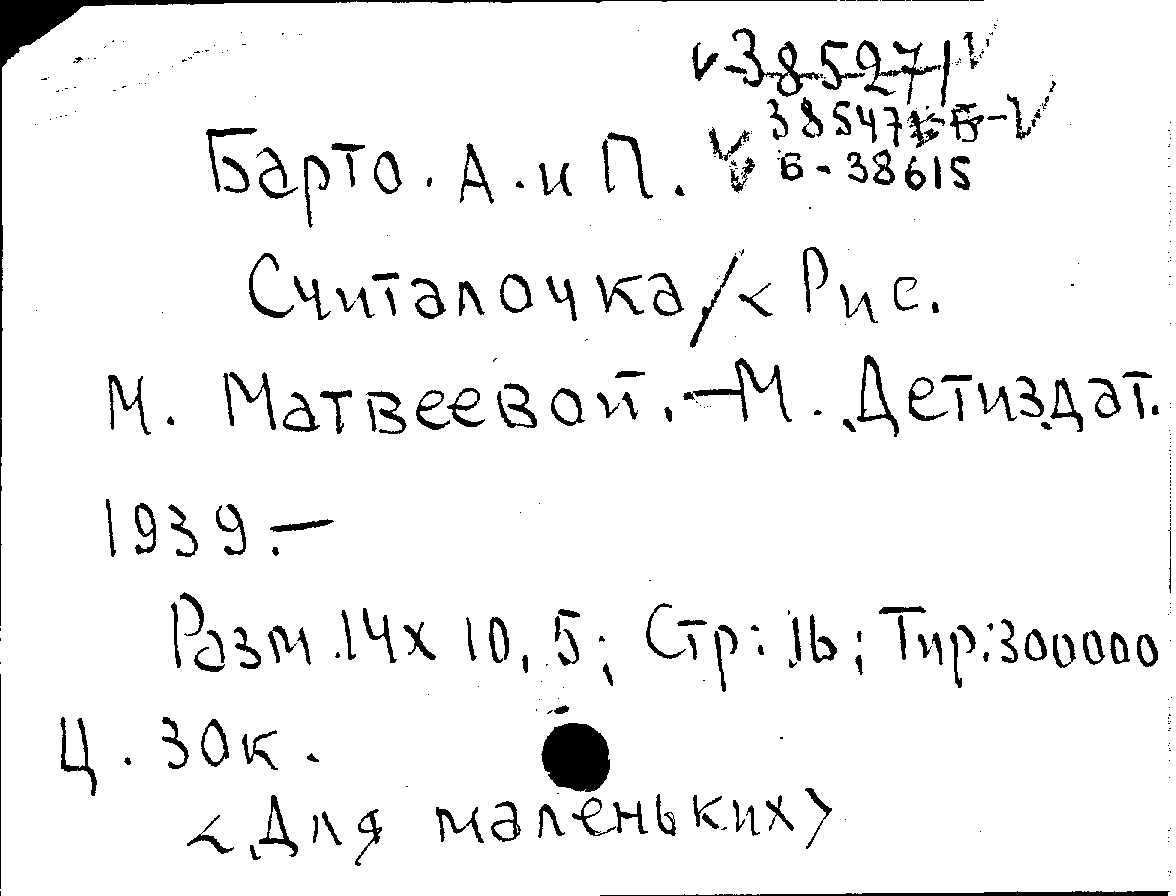 385271
38547
Барто. А. и П. Б-38615
Считалочка/< Рис.
М. Матвеевой.-М. Детиздат.
1939.-
Разм.14х 10,5; Стр: 16; Тир:300000
Ц. 30к.
<Для маленьких>